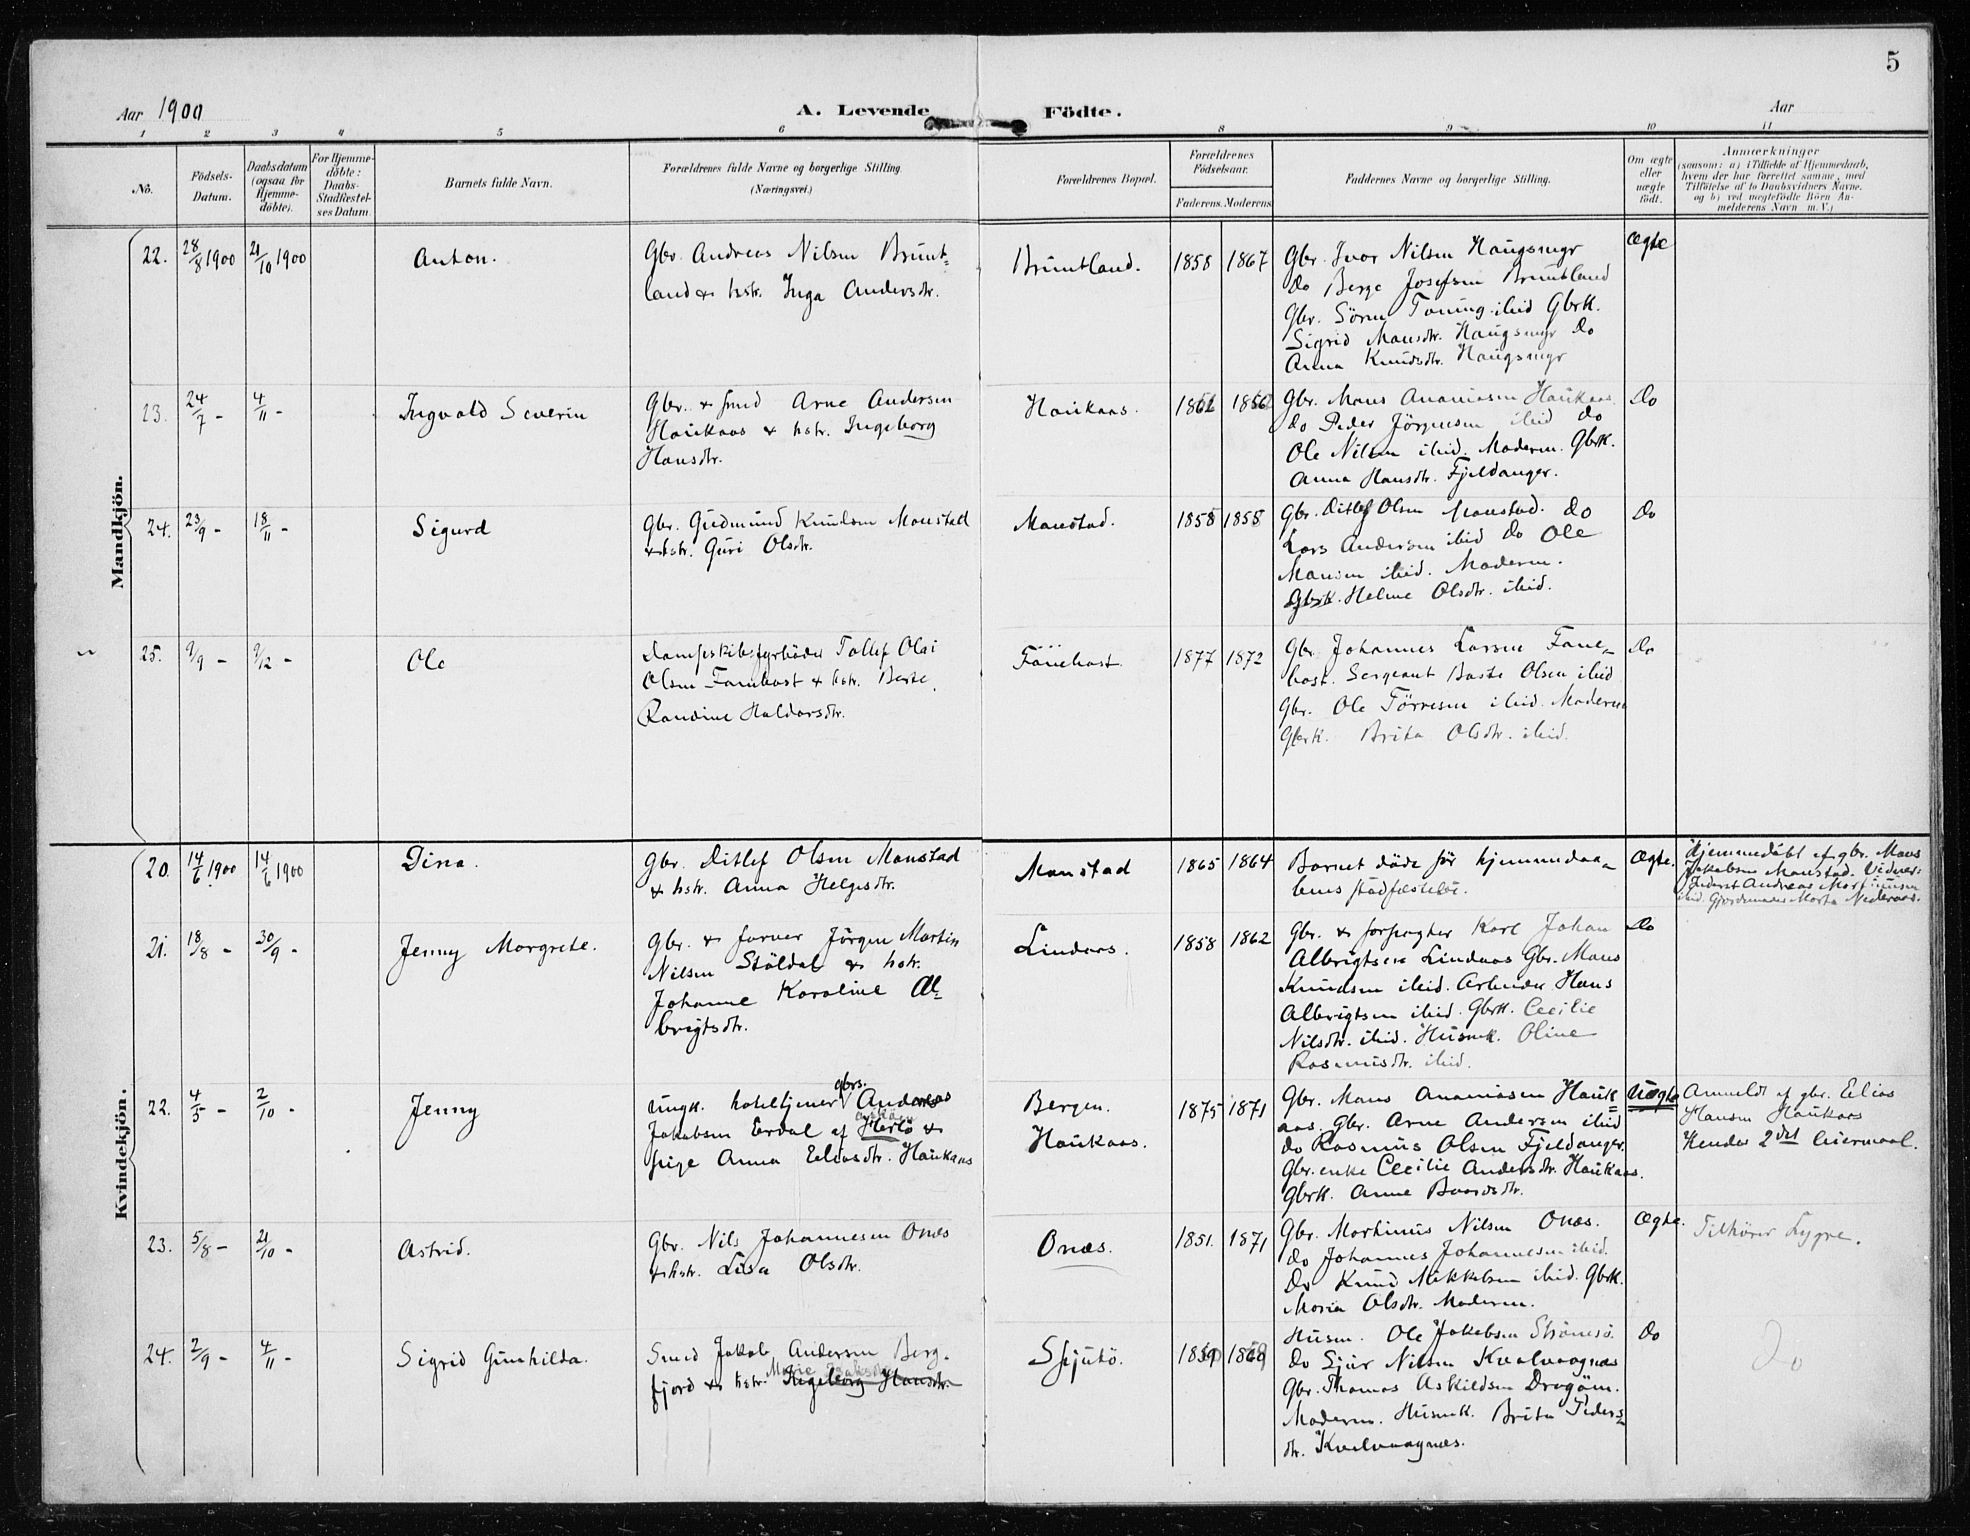 5
Aar 1900
A. Levende
Födte.
Aar
1 2 3 4 5 6 8 9 10 11
No.
Födsels-
Datum.
Daabsdatum
(ogsaa for
Hjemme-
döbte).
For Hjemme-
döbte:
Daabs-
Stadfæstel-
ses Datum.
Barnets fulde Navn.
Forældrenes fulde Navne og borgerlige Stilling
(Næringsvei.)
Forældrenes Bopæl.
Forældrenes
Födselsaar.
Faderens. Moderens.
Faddernes Navne og borgerlige Stilling.
Om ægte
eller
uægte
födt.
Anmærkninger
(saasom: a) i Tilfælde af Hjemmedaab,
hvem der har forrettet samme, med
Tilföielse af to Daabsvidners Navne.
og b) ved uægtefödte Börn An-
melderens Navn m. V.)
Mandkjön.
22. 28/8 1900 21/10 1900
Anton.
Gbr. Andreas Nilsen Brunt-
land & hstr. Inga Andersdtr.
Bruntland.
1858 1867
Gbr. Ivar Nilsen Haugsmyr
do Berge Josefsen Bruntland
Gbr. Sören Toning ibid Gbrk.
Sigrid Mansdtr. Haugsmyr do
Anna Knudsdtr. Haugsmyr
Ægte
23. 24/7 - 4/11 -
Ingvald Severin
Gbr. & smed Arne Andersen
Haukaas & hstr. Ingeborg
Hansdtr.
Haukaas.
Gbr. Mons Ananiasen Haukaas
do Peder Jörgensen ibid do
Ole Nilsen ibid. Moderen. Gbrk.
Anna Hansdtr. Fjeldanger.
Do
24. 23/9 - 18/11 -
Sigurd
Gbr. Gudmund Knudsen Monstad
& hstr. Guri Olsdtr.
Monstad.
1858 1858
Gbr. Ditlef Olsen Monstad. do
Lars Andersen ibid do Ole
Monsen ibid. Moderen.
Gbrk. Helene Olsdtr. ibid.
Do
25. 9/9 - 9/12 -
Ole
Dampskibsfyrböder Tollef Olai
Olsen Fanebost & hstr. Berte
Randine Haldorsdtr.
Fanebost.
1877 1872
Gbr. Johannes Larsen Fane-
bost. Sergeant Baste Olsen ibid
Gbr. Ole Törresen ibid. Moderen
Gbrk. Brita Olsdtr. ibid.
Do
Kvindekjön.
20. 14/6 1900 14/6 1900
Dina.
Gbr. Ditlef Olsen Monstad
& hstr. Anna Helgesdtr.
Monstad
1865 1864
Barnet döde för hjemmedaa-
bens stadfæstelse.
Ægte.
Hjemmedöbt af gbr. Mons
Jakobsen Monstad. Vidner:
Andreas Martinusen
ibid. Gjordemoder Marta Nederaas.
21. 18/8 - 30/9 -
Jenny Margrete.
Gbr. & farver Jörgen Martin
Nilsen Stöldal & hstr.
Johanne Karoline Al-
brigtsdtr.
Lindaas.
1858 1862
Gbr. & forpagter Karl Johan
Albrigtsen Lindaas Gbr. Mons
Knudsen ibid. Arbeider Hans
Albrigtsen ibid. Gbrk. Cecilie
Nilsdtr. ibid. Husmk. Oline
Rasmusdtr. ibid.
Do
22. 4/5 - 2/10 -
Jenny
Ungk. hoteltjener gbrs. Andreas
Jakobsen Erdal af Herlö &
pige Anna Eliasdtr. Haukaas
Bergen.
Haukaas.
1875 1871
Gbr. Mons Ananiasen Hauk-
aas. Gbr. Arne Andersen ibid
do Rasmus Olsen Fjeldanger
Gbr. enke Cecilie Andersdtr. Haukaas.
Gbrk. Anne Baardsdtr.
Uægte
Anmeldt af gbr. Elias
Hansen Haukaas
Hendes 2det leiermaal.
23. 5/8 - 21/10 -
Astrid.
Gbr. Nils Johannesen Onæs
& hstr. Lisa Olsdtr.
Onæs.
1851. 1871
Gbr. Martinus Nilsen Onæs.
do Johannes Johannesen ibid.
Do Knud Mikkelsen ibid. Gbrk.
Maria Olsdtr. Moderen.
Ægte.
Tilhörer Lygre.
24. 2/9 - 4/11 -
Sigrid Gunhilda.
Smed Jakob Andersen Berg-
fjord & hstr. Marie Ingeborg Hansdtr.
Spjutö.
Husm. Ole Jakobsen Strömsö.
do Sjur Nilsen Kvalvaagnæs
Gbr. Thomas Askildsen Dragöen.
Moderen. Husmk. Brita Peders-
dtr. Kvalvaagnæs.
Do
Do